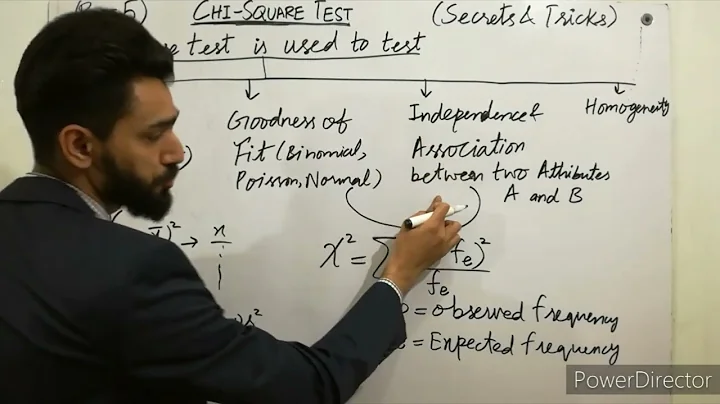 5) CHI-SQUARE TEST (Secrets & Tricks)
test is used to test
Goodness of
Fit (Binomial,
Poisson, Normal)
Independence &
Association
between two Attributes
A and B
Homogeneity
)² → n
χ² = ∑ fe)²
fe
= observed frequency
= Expected frequency
s²
PowerDirector